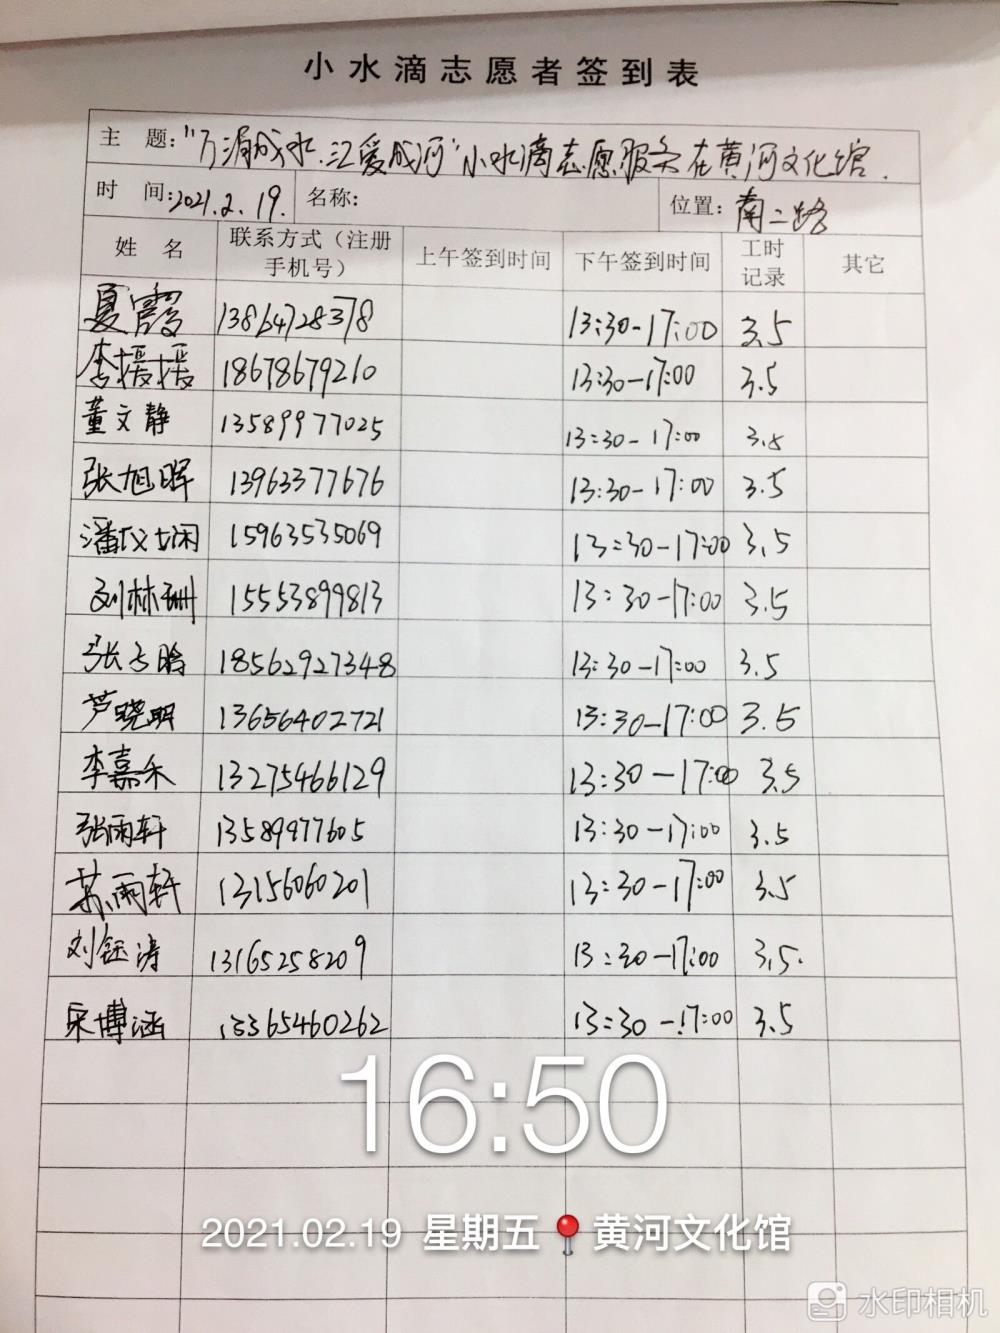 小水滴志愿者签到表
主 题:"万滴成水.汇爱成河"小水滴志愿服务在黄河文化馆.
时 间:2021.2.19. 名称: 位置:南二路
姓 名 联系方式（注册手机号） 上午签到时间 下午签到时间 工时记录 其它
夏霞 13864728378 13:30-17:00 3.5
李援援 18678679210 13:30-17:00 3.5
董文静 13589977025 13:30-17:00 3.5
张旭晖 13963377676 13:30-17:00 3.5
潘 15963535069 13:30-17:00 3.5
刘林珊 15553899813 13:30-17:00 3.5
张 18562927348 13:30-17:00 3.5
芦晓明 13656402721 13:30-17:00 3.5
李嘉禾 13275466129 13:30-17:00 3.5
张雨轩 13589977605 13:30-17:00 3.5
苏雨轩 13156060201 13:30-17:00 3.5
刘钰涛 13165258209 13:30-17:00 3.5.
宋博涵 15365460262 13:30-17:00 3.5
16:50
2021.02.19 星期五 黄河文化馆
水印相机